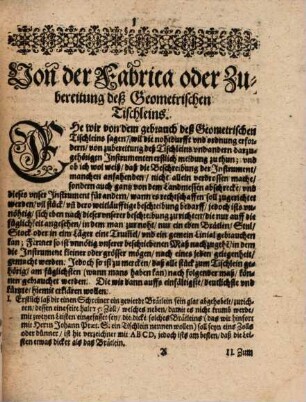 1
Von der Fabrica oder Zu-
bereitung deß Geometrischen
Tischleins.
EHe wir von dem gebrauch deß Geometrischen
Tischleins sagen/ wil die nohturfft vnd ordnung erfor-
dern/ von zubereitung deß Tischleins vnd andern darzu-
gehörigen Instrumenten erstlich meldung zu thun; vnd
ob ich wol weiß/ daß die Beschreibung der Instrumenten/
manchen anfahenden/ nicht allein verdrossen mache/
sondern auch gantz von dem Landmessen abschrecke; vnd
dieses vnser Instrument für andern/ wann es rechtschaffen soll zugerichtet
werden/ vil stück/ vnd dero weitläufftige beschreibung bedarff/ jedoch ists vn-
nöhtig/ sich eben nach dieser vnserer beschreibung zu richten/
täglich
Stock oder in den Läger eine Trummel/ vnd ein gemein Linial gebrauchen
kan; Ferner ist es vnnötig vnserer beschriebenen Maß nachzugehen/
die Instrument kleiner oder grösser mögen/ nach eines jeden gelegenheit/
gemacht werden. Jedoch so ist zu mercken/ daß alle stück zum Tischlein ge-
hörig/ am füglichsten (wann mans haben kan) nach folgender maß/ kön-
nen gebrauchet werden. Die wir dann auffs einfältigste/ deutlichste vnd
kürtzte/ hiemit erklären wollen.
I. Erstlich laß dir einen Schreiner ein gevierdt Brätlein fein glat abgehobelt/ zurich-
ten/ dessen eine seite halte 15 Zoll/ welches neben/ damit es nicht krumb werde/
mit zweyen Leisten eingefasset sey/ die dicke solches Brätleins (das wir hinfort
mit Herrn Johann Præt. S. ein Tischlein nennen wollen) soll seyn eins Zolls
oder dünner/ ist hie verzeichnet mit ABCD, jedoch ists am besten/ daß die Lei-
sten etwas dicker als das Brätlein.
A
II. Zum